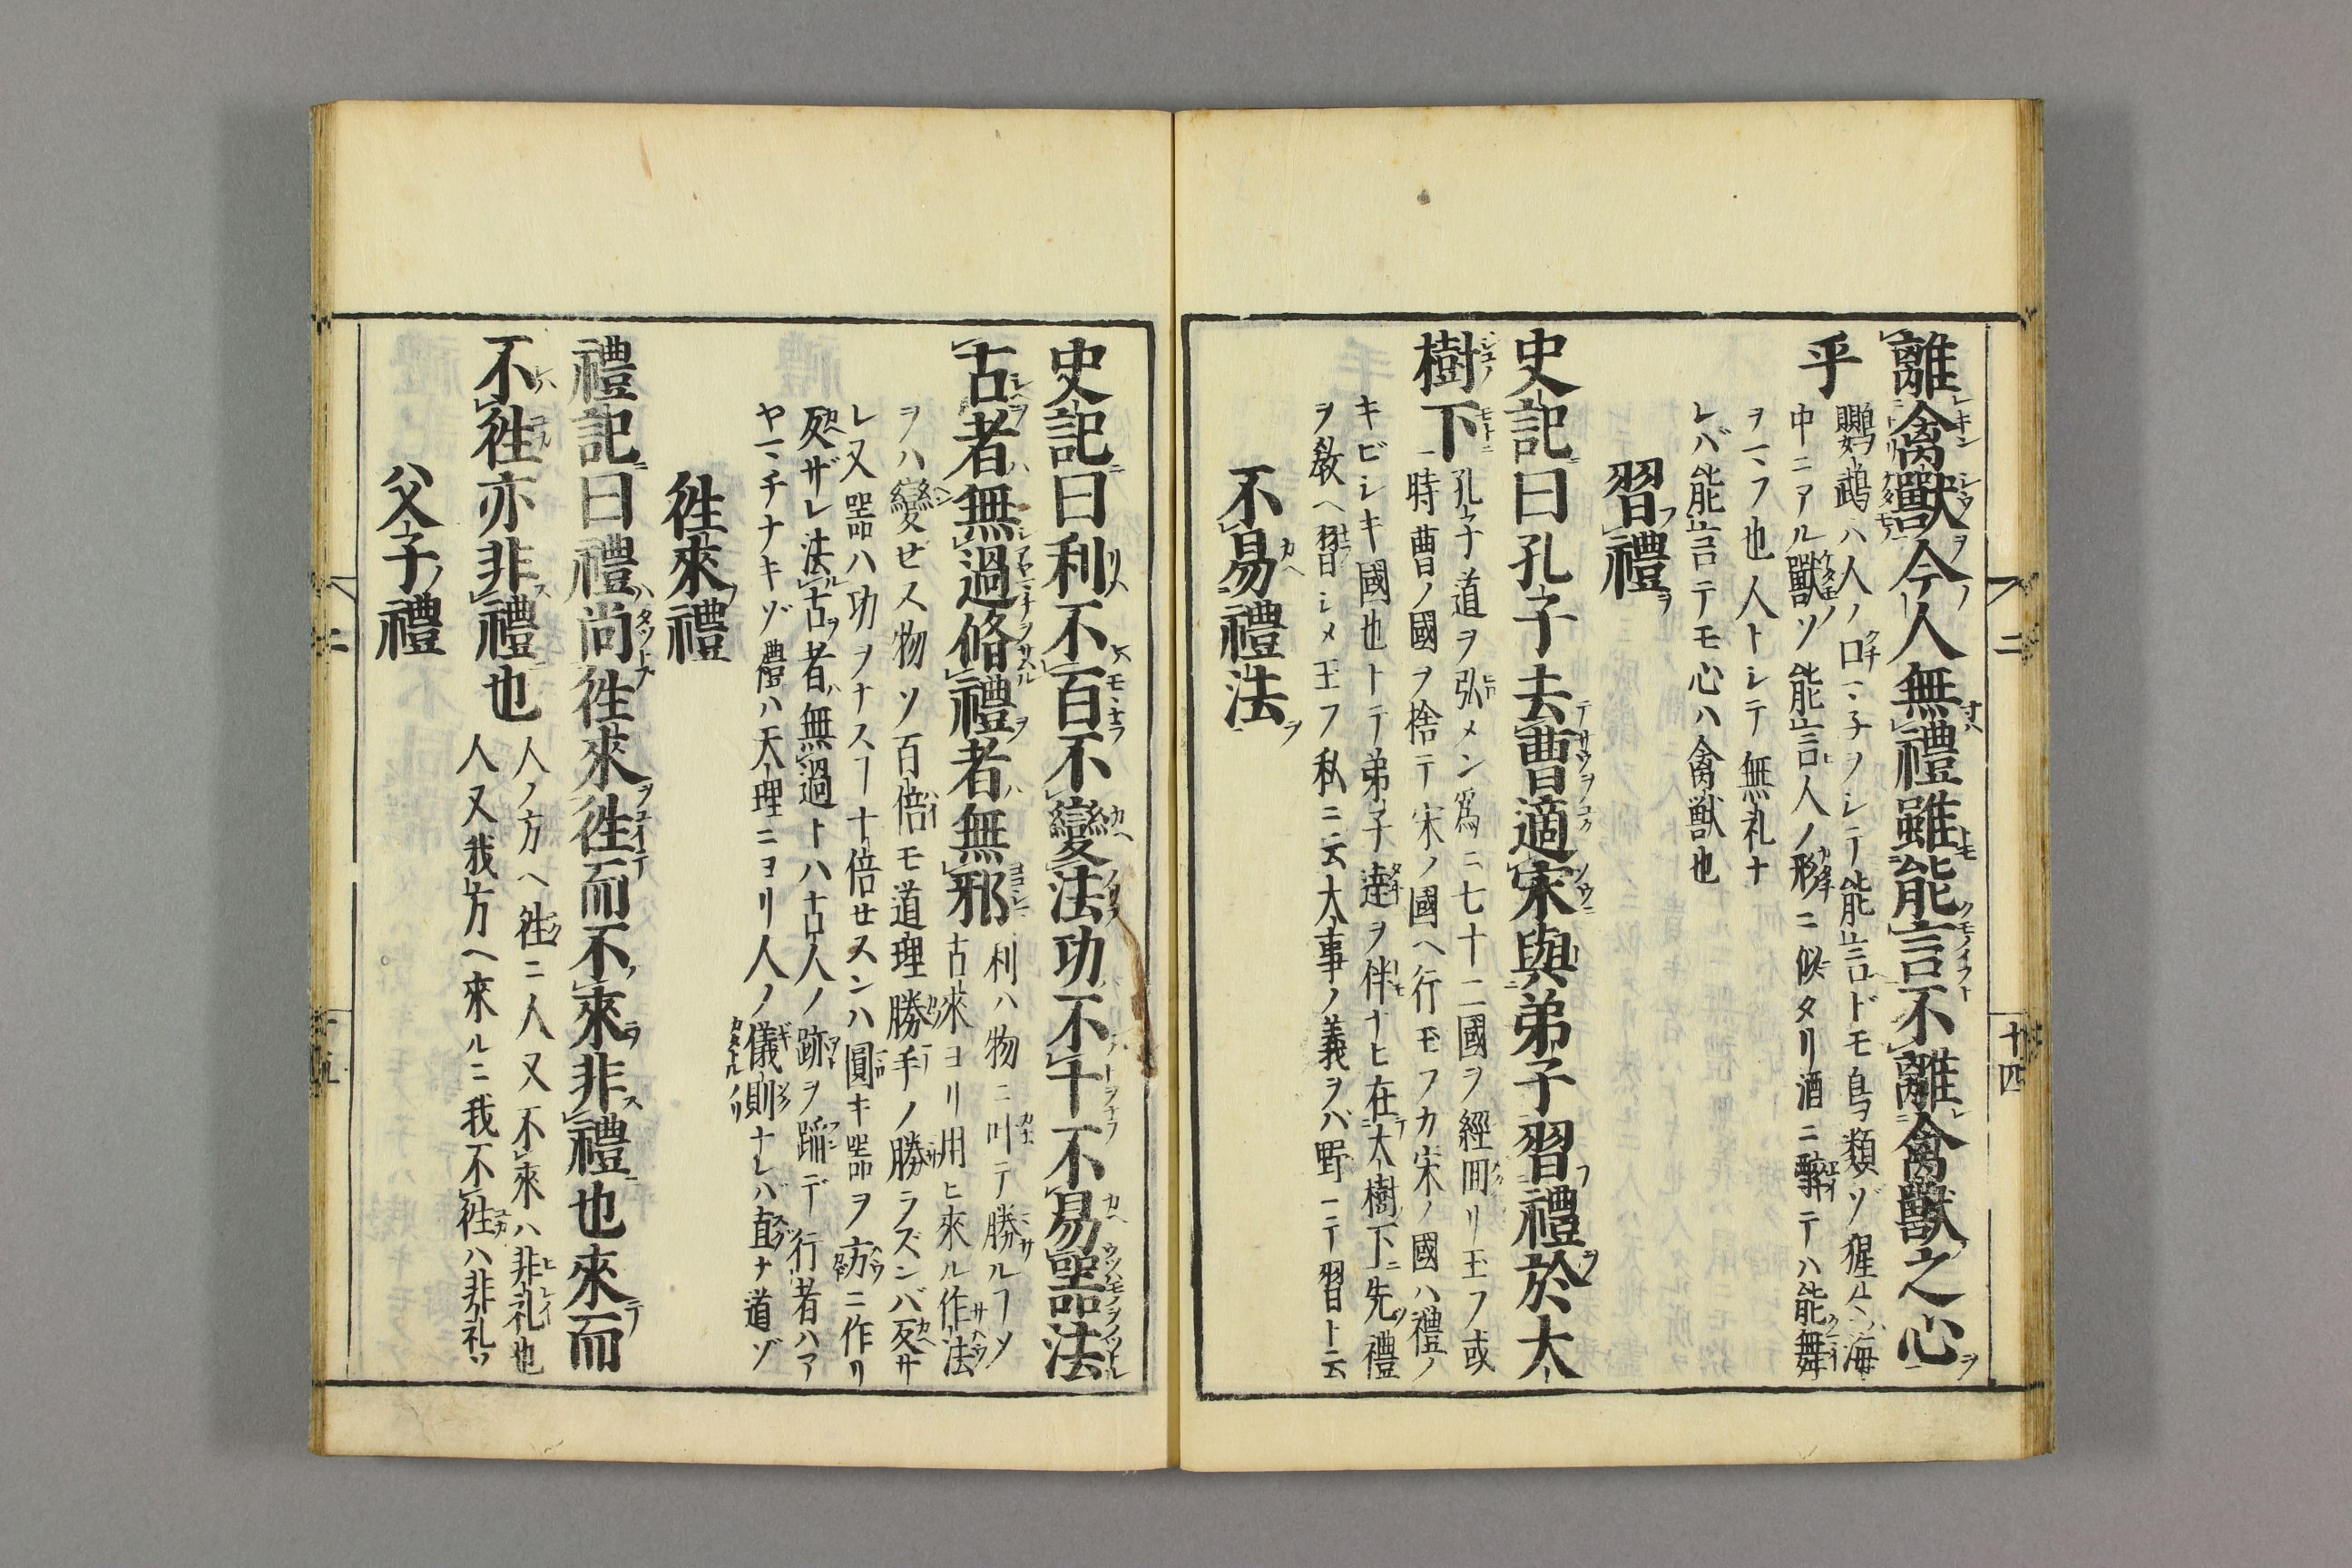 離禽獸今人無禮雖能言不離禽獸之心
乎
鸚鵡ハ人ノ口マ子ヲシテ能言ドモ鳥類ゾ猩々ハ海
中ニアル獸ソ能言人ノ形ニ似タリ酒ニ酔テハ能舞
ヲマフ也人トシテ無礼ナ
レバ能言テモ心ハ禽獸也
習禮
史記曰孔子去曹適宋與弟子習禮於大
樹下
孔子道ヲ弘メン爲ニ七十二國ヲ經囬リ玉フ或
一時曹ノ國ヲ捨テ宋ノ國ヘ行玉フカ宋ノ國ハ禮ノ
キビシキ國也トテ弟子達ヲ伴ナヒ在大樹下ニ先禮
ヲ敎ヘ習シメ玉フ私ニ云大事ノ義ヲバ野ニテ習ト云
不易禮法
史記曰利不百不變法功不十不易噐法
古者無過脩禮者無邪
利ハ物ニ叶テ勝ルヿソ
古來ヨリ用ヒ來ル作法
ヲハ變ゼス物ソ百倍モ道理勝手ノ勝ラズンバ反サ
レ又噐ハ功ヲナスヿ十倍セスンハ圓キ噐ヲ方ニ作リ
反ザレ法古者無過トハ古人ノ跡ヲ蹈デ行者ハア
ヤマチナキゾ禮ハ天理ニヨリ人ノ儀則ナレバ直ナ道ゾ
徃來禮
禮記曰禮尚徃來徃而不來非禮也來而
不徃亦非禮也
人ノ方ヘ徃ニ人又不來ハ非礼也
人又我方ヘ來ルニ我不徃ハ非礼ソ
父子禮
二
十四